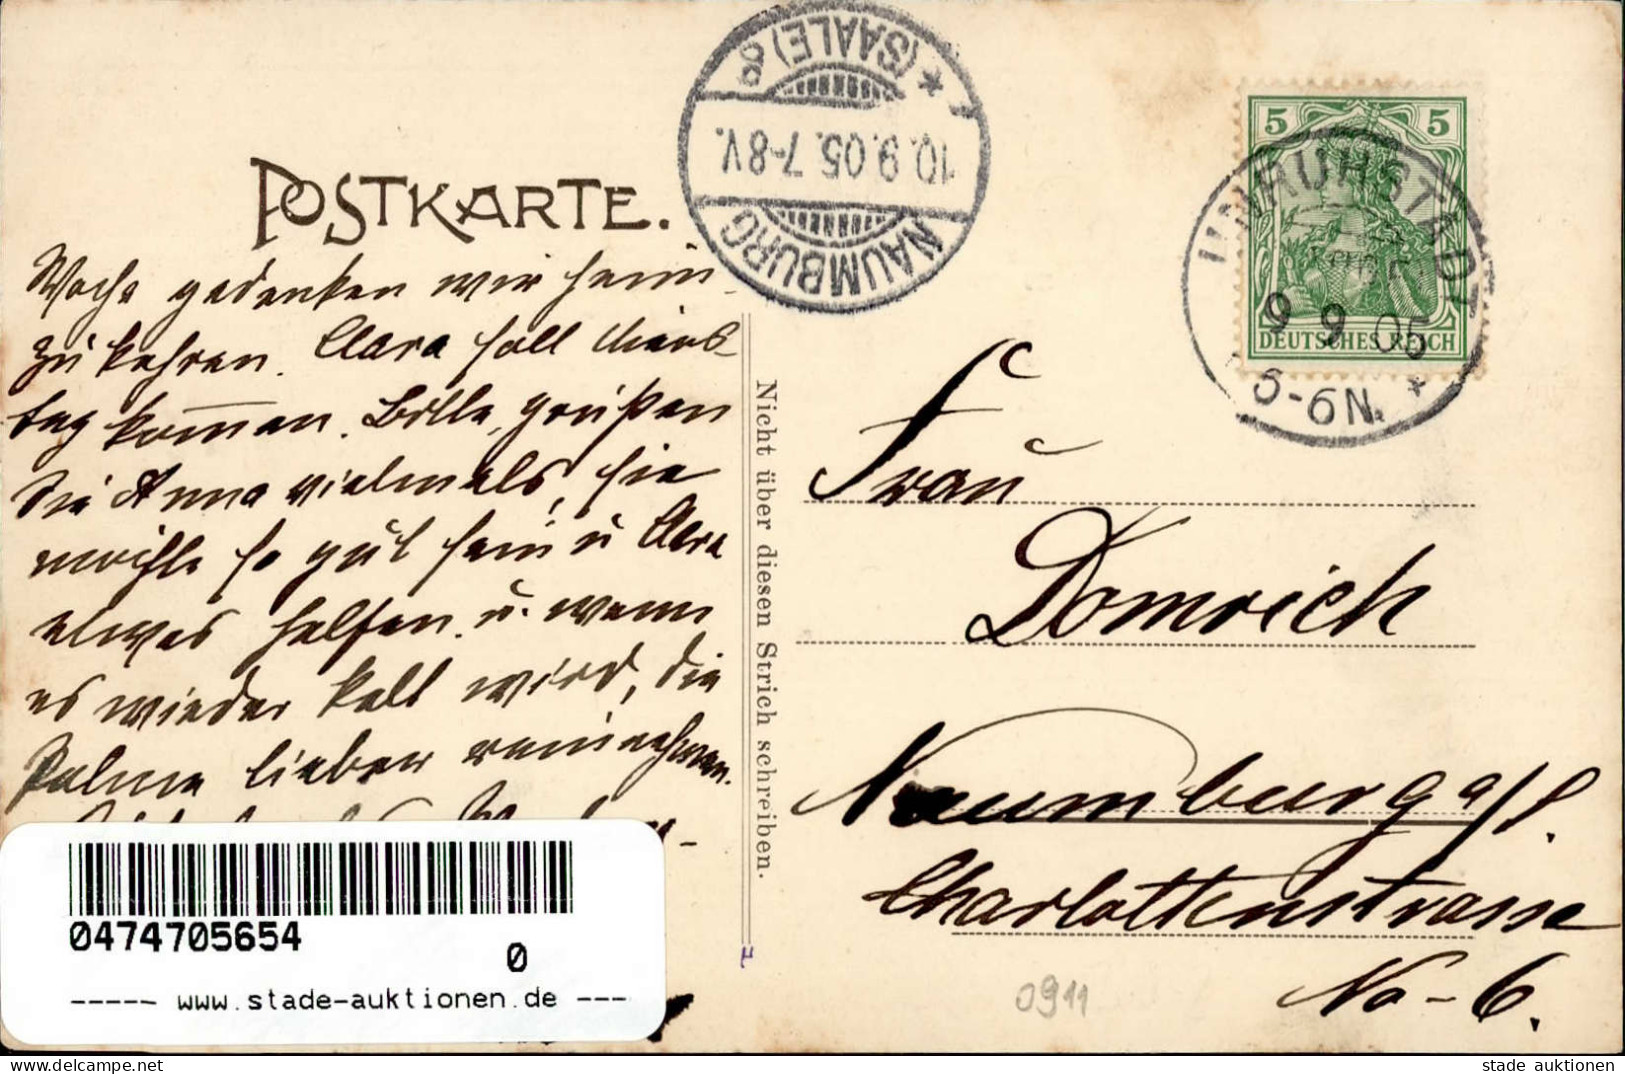 POSTKARTE.
NAUMBURG
10.9.05.7-8V.
* (SAALE) 8
5 5
DEUTSCHES REICH
UNRUHSTADT
9 9 05
5-6N. *
Woche gedenken wir heim-
zukehren. Clara soll Diens-
tag kommen. Bitte, grüßen
Sie Anna vielmals, sie
möchte so gut sein u Clara
etwas helfen u. wenn
es wieder kalt wird, die
Palme lieber reinnehmen.
Nicht über diesen Strich schreiben.
Frau
Domrich
Naumburg a/S.
Charlottenstrasse
No-6.
0911
0474705654
0
----- www.stade-auktionen.de ---
stade auktionen